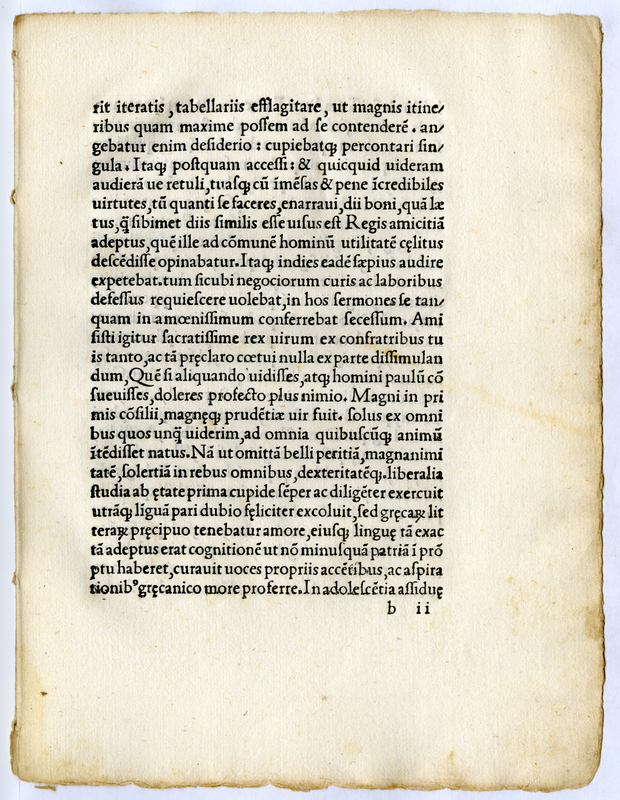 rit iteratis, tabellariis efflagitare, ut magnis itine/
ribus quam maxime possem ad se contendere. an/
gebatur enim desiderio: cupiebatq̃ percontari sin/
gula. Itaq̃ postquam accessi: & quicquid uideram
audierã ue retuli, tuasq̃ cũ ĩmẽsas & pene ĩcredibiles
uirtutes, tũ quanti se faceres, enarraui, dii boni, quã læ
tus, q̃ sibimet diis similis esse uisus est Regis amicitiã
adeptus, quẽ ille ad cõmunẽ hominũ utilitatẽ cęlitus
descẽdisse opinabatur. Itaq̃ indies eadẽ sæpius audire
expetebat. tum sicubi negociorum curis ac laboribus
defessus requiescere uolebat, in hos sermones se tan/
quam in amœnissimum conferrebat secessum. Ami
sisti igitur sacratissime rex uirum ex confratribus tu
is tanto, ac tã pręclaro cœtui nulla ex parte dissimulan
dum, Quẽ si aliquando uidisses, atq̃ homini paulũ cõ
sueuisses, doleres profecto plus nimio. Magni in pri
mis cõsilii, magnęq̃ prudẽtiæ uir fuit. solus ex omni
bus quos unq̃ uiderim, ad omnia quibuscũq̃ animũ
ĩtẽdisset natus. Nã ut omittã belli peritiã, magnanimi
tatẽ, solertiã in rebus omnibus, dexteritatẽq̃. liberalia
studia ab ętate prima cupide sẽper ac diligẽter exercuit
utrãq̃ lĩguã pari dubio fęliciter excoluit, sed gręcaꝝ lit
teraꝝ pręcipuo tenebatur amore, eiusq̃ linguę tã exac
tã adeptus erat cognitionẽ ut nõ minusquã patriã ĩ prõ
ptu haberet, curauit uoces propriis accẽtibus, ac aspira
tionibꝰ gręcanico more proferre. In adolescẽtia assiduę
b ii